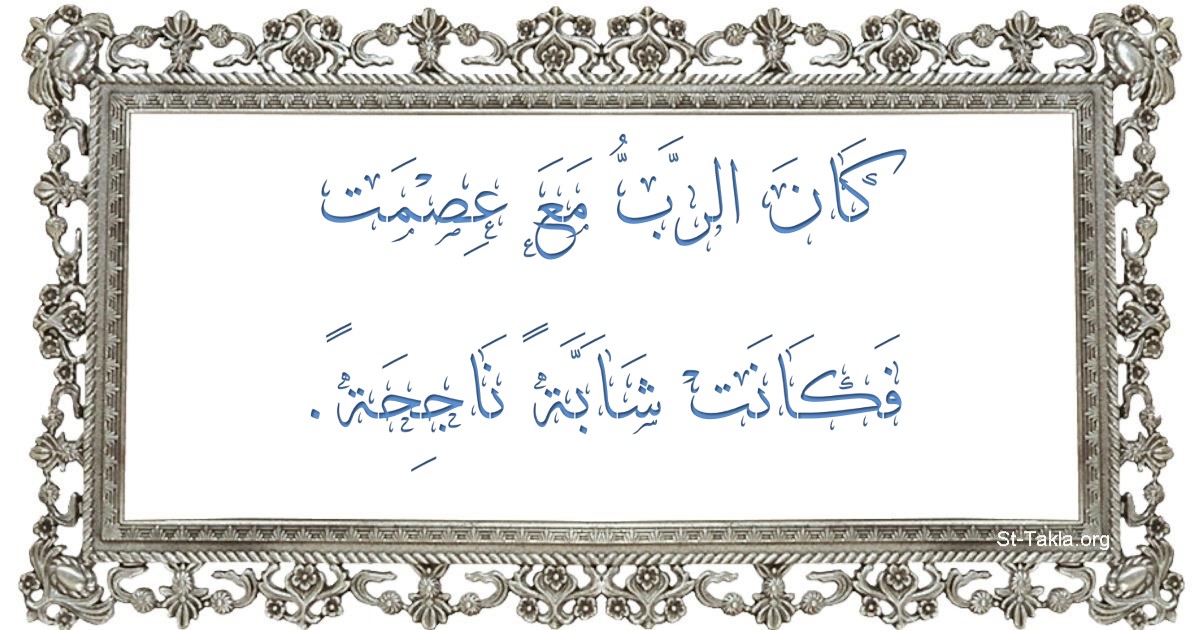 كَانَ الرَّبُّ مَعَ عِصْمَت
فَكَانَتْ شَابَّةً نَاجِحَةً.
St-Takla.org